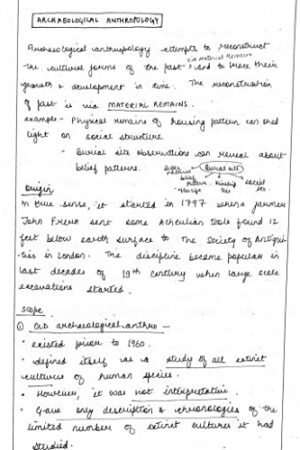 ARCHAEOLOGICAL ANTHROPOLOGY
Archaeological anthropology attempts to reconstruct
via material remains
the cultural forms of the past and to trace their
growth & development in time. The reconstruction
of past is via MATERIAL REMAINS.
example - Physical remains of housing pattern can shed
light on social structure
- Burial site observations can reveal about
belief patterns.
Burial site
belief
kinship
social
Origin
In true sense, it started in 1797 when a farmer
John Frere sent some Acheulian tools found 12
feet below earth surface to the Society of Antiqui-
ties in London. The discipline became popular in
last decades of 19th century when large scale
excavations started.
Scope
① OLD archaeological anthro -
• existed prior to 1960.
• defined itself as a study of all extinct
cultures of human species.
• However, it was not interpretative.
• Gave only description & chronologies of the
limited number of extinct cultures it had
studied.